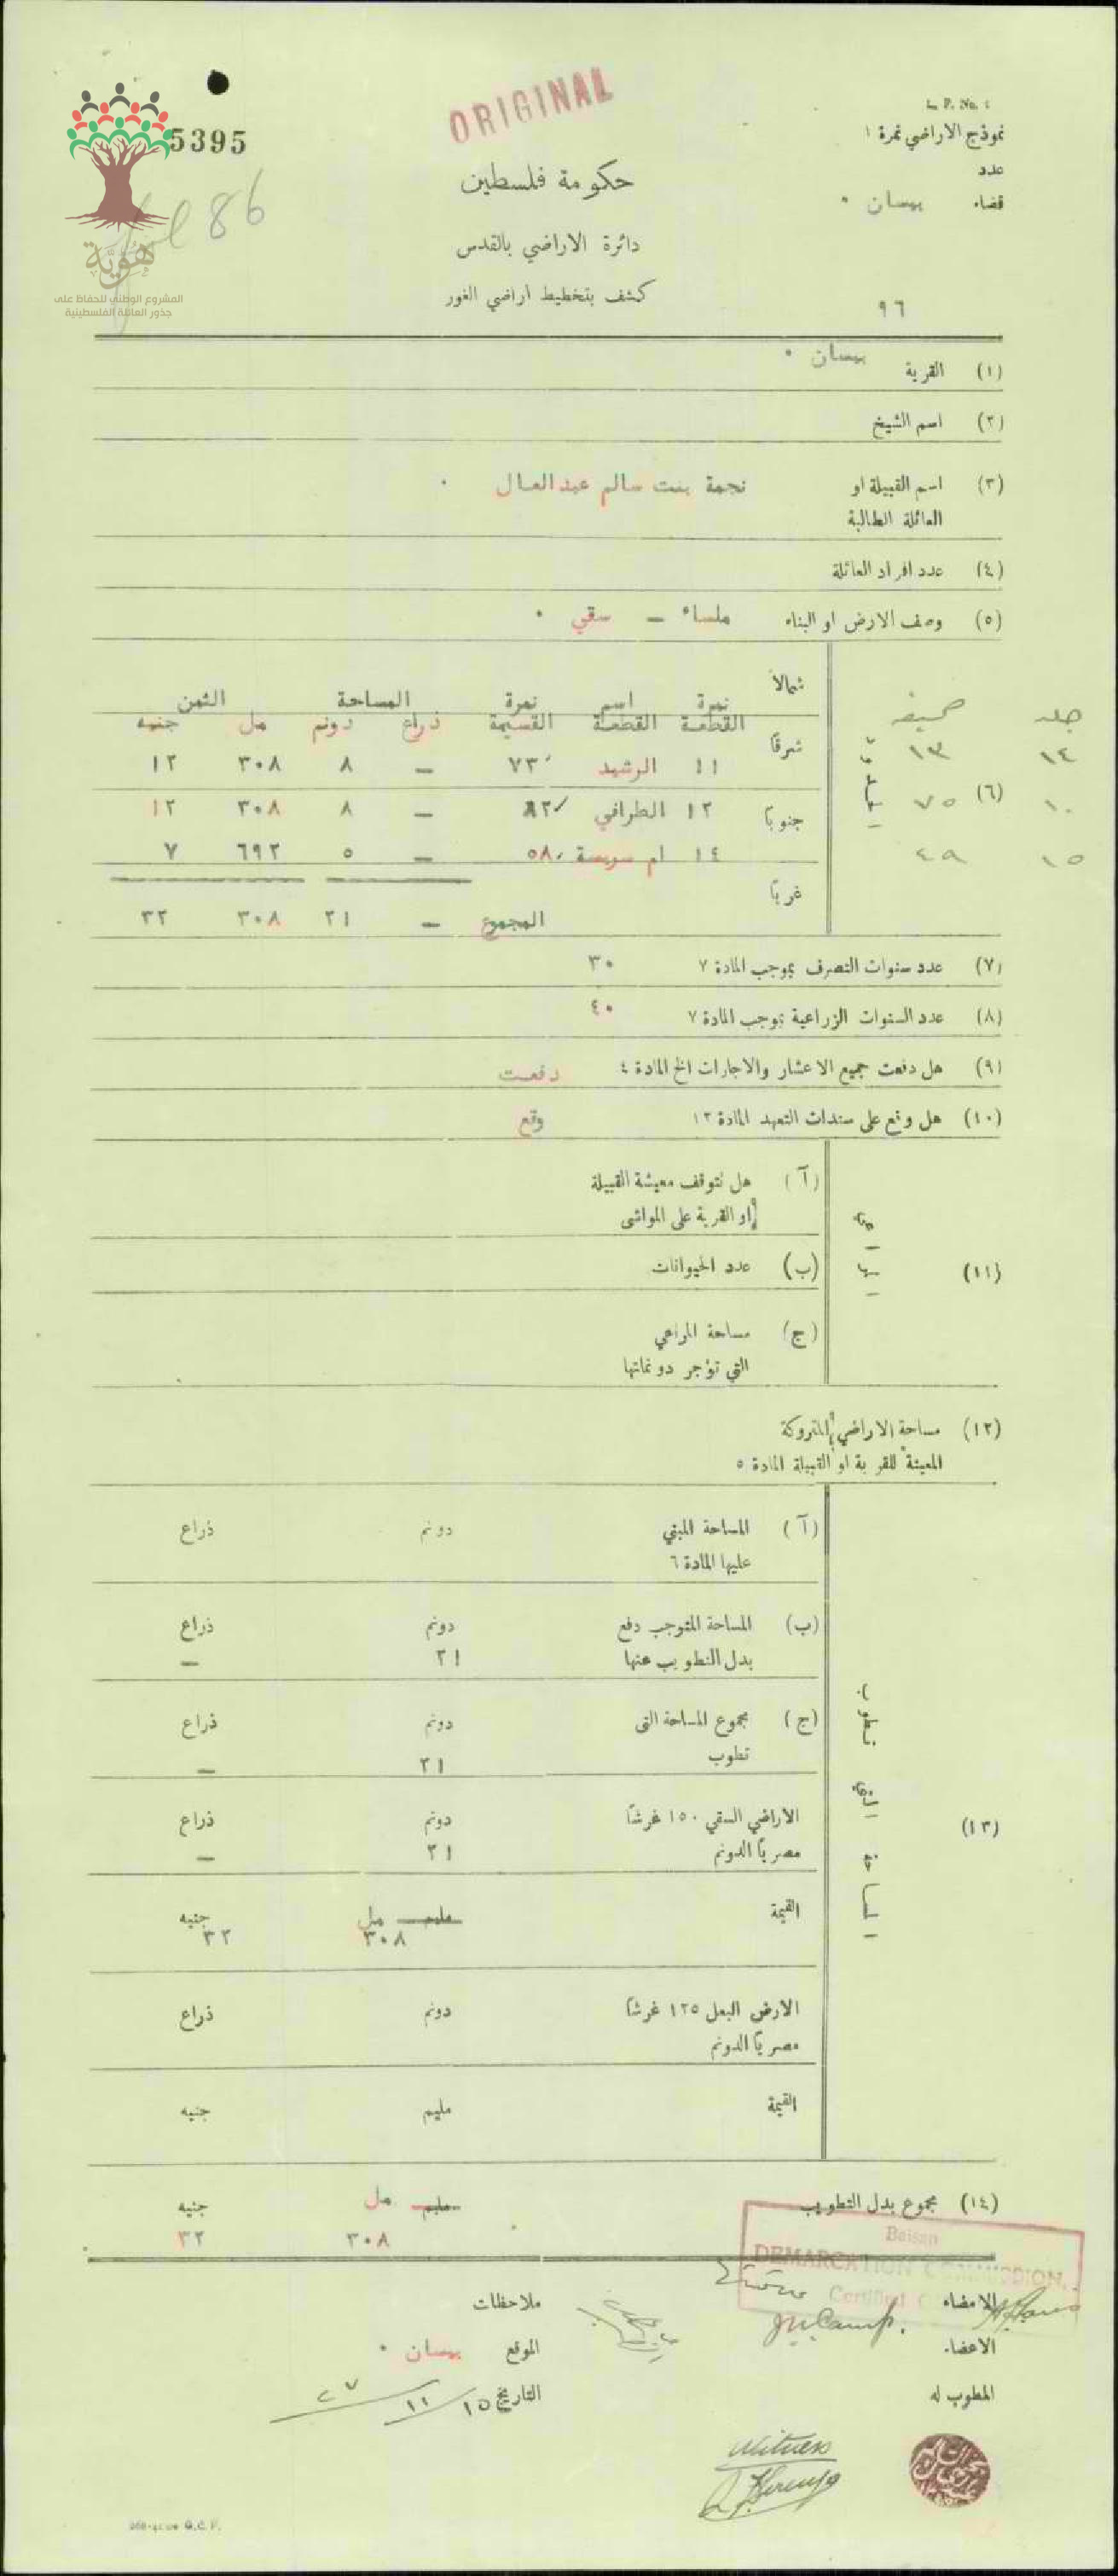 ORIGINAL
L. P. No. 1
نموذج الاراضي نمرة ١
5395
عدد
حكومة فلسطين
قضاء بيسان
86
دائرة الاراضي بالقدس
هُوِيَّة
المشروع الوطني للحفاظ على
جذور العائلة الفلسطينية
كشف بتخطيط اراضي الغور
٩٦
(١) القرية بيسان
(٢) اسم الشيخ
(٣) اسم القبيلة او نجمة بنت سالم عبدالعال
العائلة الطالبة
(٤) عدد افراد العائلة
(٥) وصف الارض او البناء ملساء — سقي
شمالاً
جلد صحيفة
نمرة اسم نمرة المساحة الثمن
القطعة القطعة القسيمة ذراع دونم مل جنيه
١٤ ١٣ شرقاً ١١ الرشيد ٧٣ — ٨ ٣٠٨ ١٢
(٦) الحدود
١٠ ٧٥ جنوباً ١٢ الطرافي ٨٢ — ٨ ٣٠٨ ١٢
١٥ ٤٩ ١٤ ام سريسة ٥٨ — ٥ ٦٩٢ ٧
غرباً
المجموع — ٢١ ٣٠٨ ٣٢
(٧) عدد سنوات التصرف بموجب المادة ٧ ٣٠
(٨) عدد السنوات الزراعية بموجب المادة ٧ ٤٠
(٩) هل دفعت جميع الاعشار والاجارات الخ المادة ٤ دفعت
(١٠) هل وقع على سندات التعهد المادة ١٢ وقع
(١١) المراعي
(آ) هل تتوقف معيشة القبيلة
او القرية على المواشى
(ب) عدد الحيوانات
(ج) مساحة المراعي
التي تؤجر دونماتها
(١٢) مساحة الاراضي المتروكة
المعينة للقرية او القبيلة المادة ٥
(١٣) المساحة التي تطوب
(آ) المساحة المبني دونم ذراع
عليها المادة ٦
(ب) المساحة المتوجب دفع دونم ذراع
بدل التطويب عنها ٢١ —
(ج) مجموع المساحة التى دونم ذراع
تطوب ٢١ —
الاراضي السقي ١٥٠ غرشاً دونم ذراع
مصرياً الدونم ٢١ —
القيمة مليم مل جنيه
٣٠٨ ٣٢
الارض البعل ١٢٥ غرشاً دونم ذراع
مصرياً الدونم
القيمة مليم جنيه
(١٤) مجموع بدل التطويب مليم مل جنيه
٣٠٨ ٣٢
Beisan
DEMARCATION COMMISSION.
Certified
الامضاء
ملاحظات
J.W.Camp.
الاعضاء
الموقع بيسان
المطوب له
التاريخ ١٥/١١/٢٧
Witness